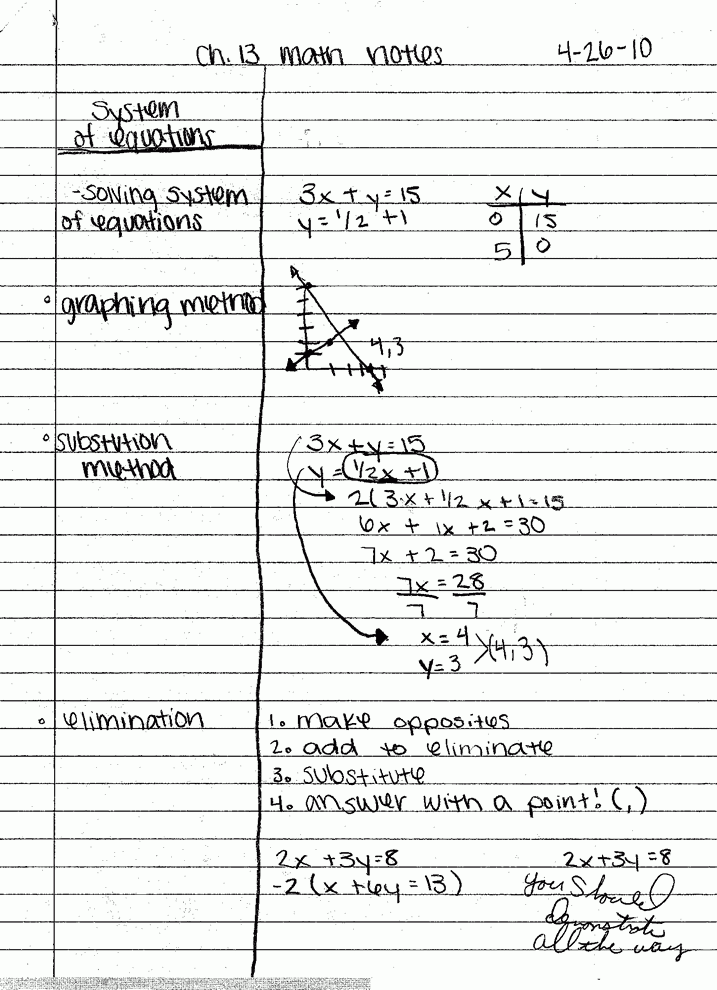 Ch. 13 math notes 4-26-10
System
of equations
-solving system
of equations
3x + y = 15
y = 1/2 + 1
x y
0 15
5 0
• graphing method
4,3
• substution
method
3x + y = 15
y = 1/2x + 1
2(3x + 1/2 x + 1 = 15
6x + 1x + 2 = 30
7x + 2 = 30
7x = 28
7 7
x = 4
y = 3 >(4,3)
• elimination
1. make opposites
2. add to eliminate
3. substitute
4. answer with a point! (,)
2x + 3y = 8
-2(x + 6y = 13)
2x + 3y = 8
You Should
demonstrate
all the way